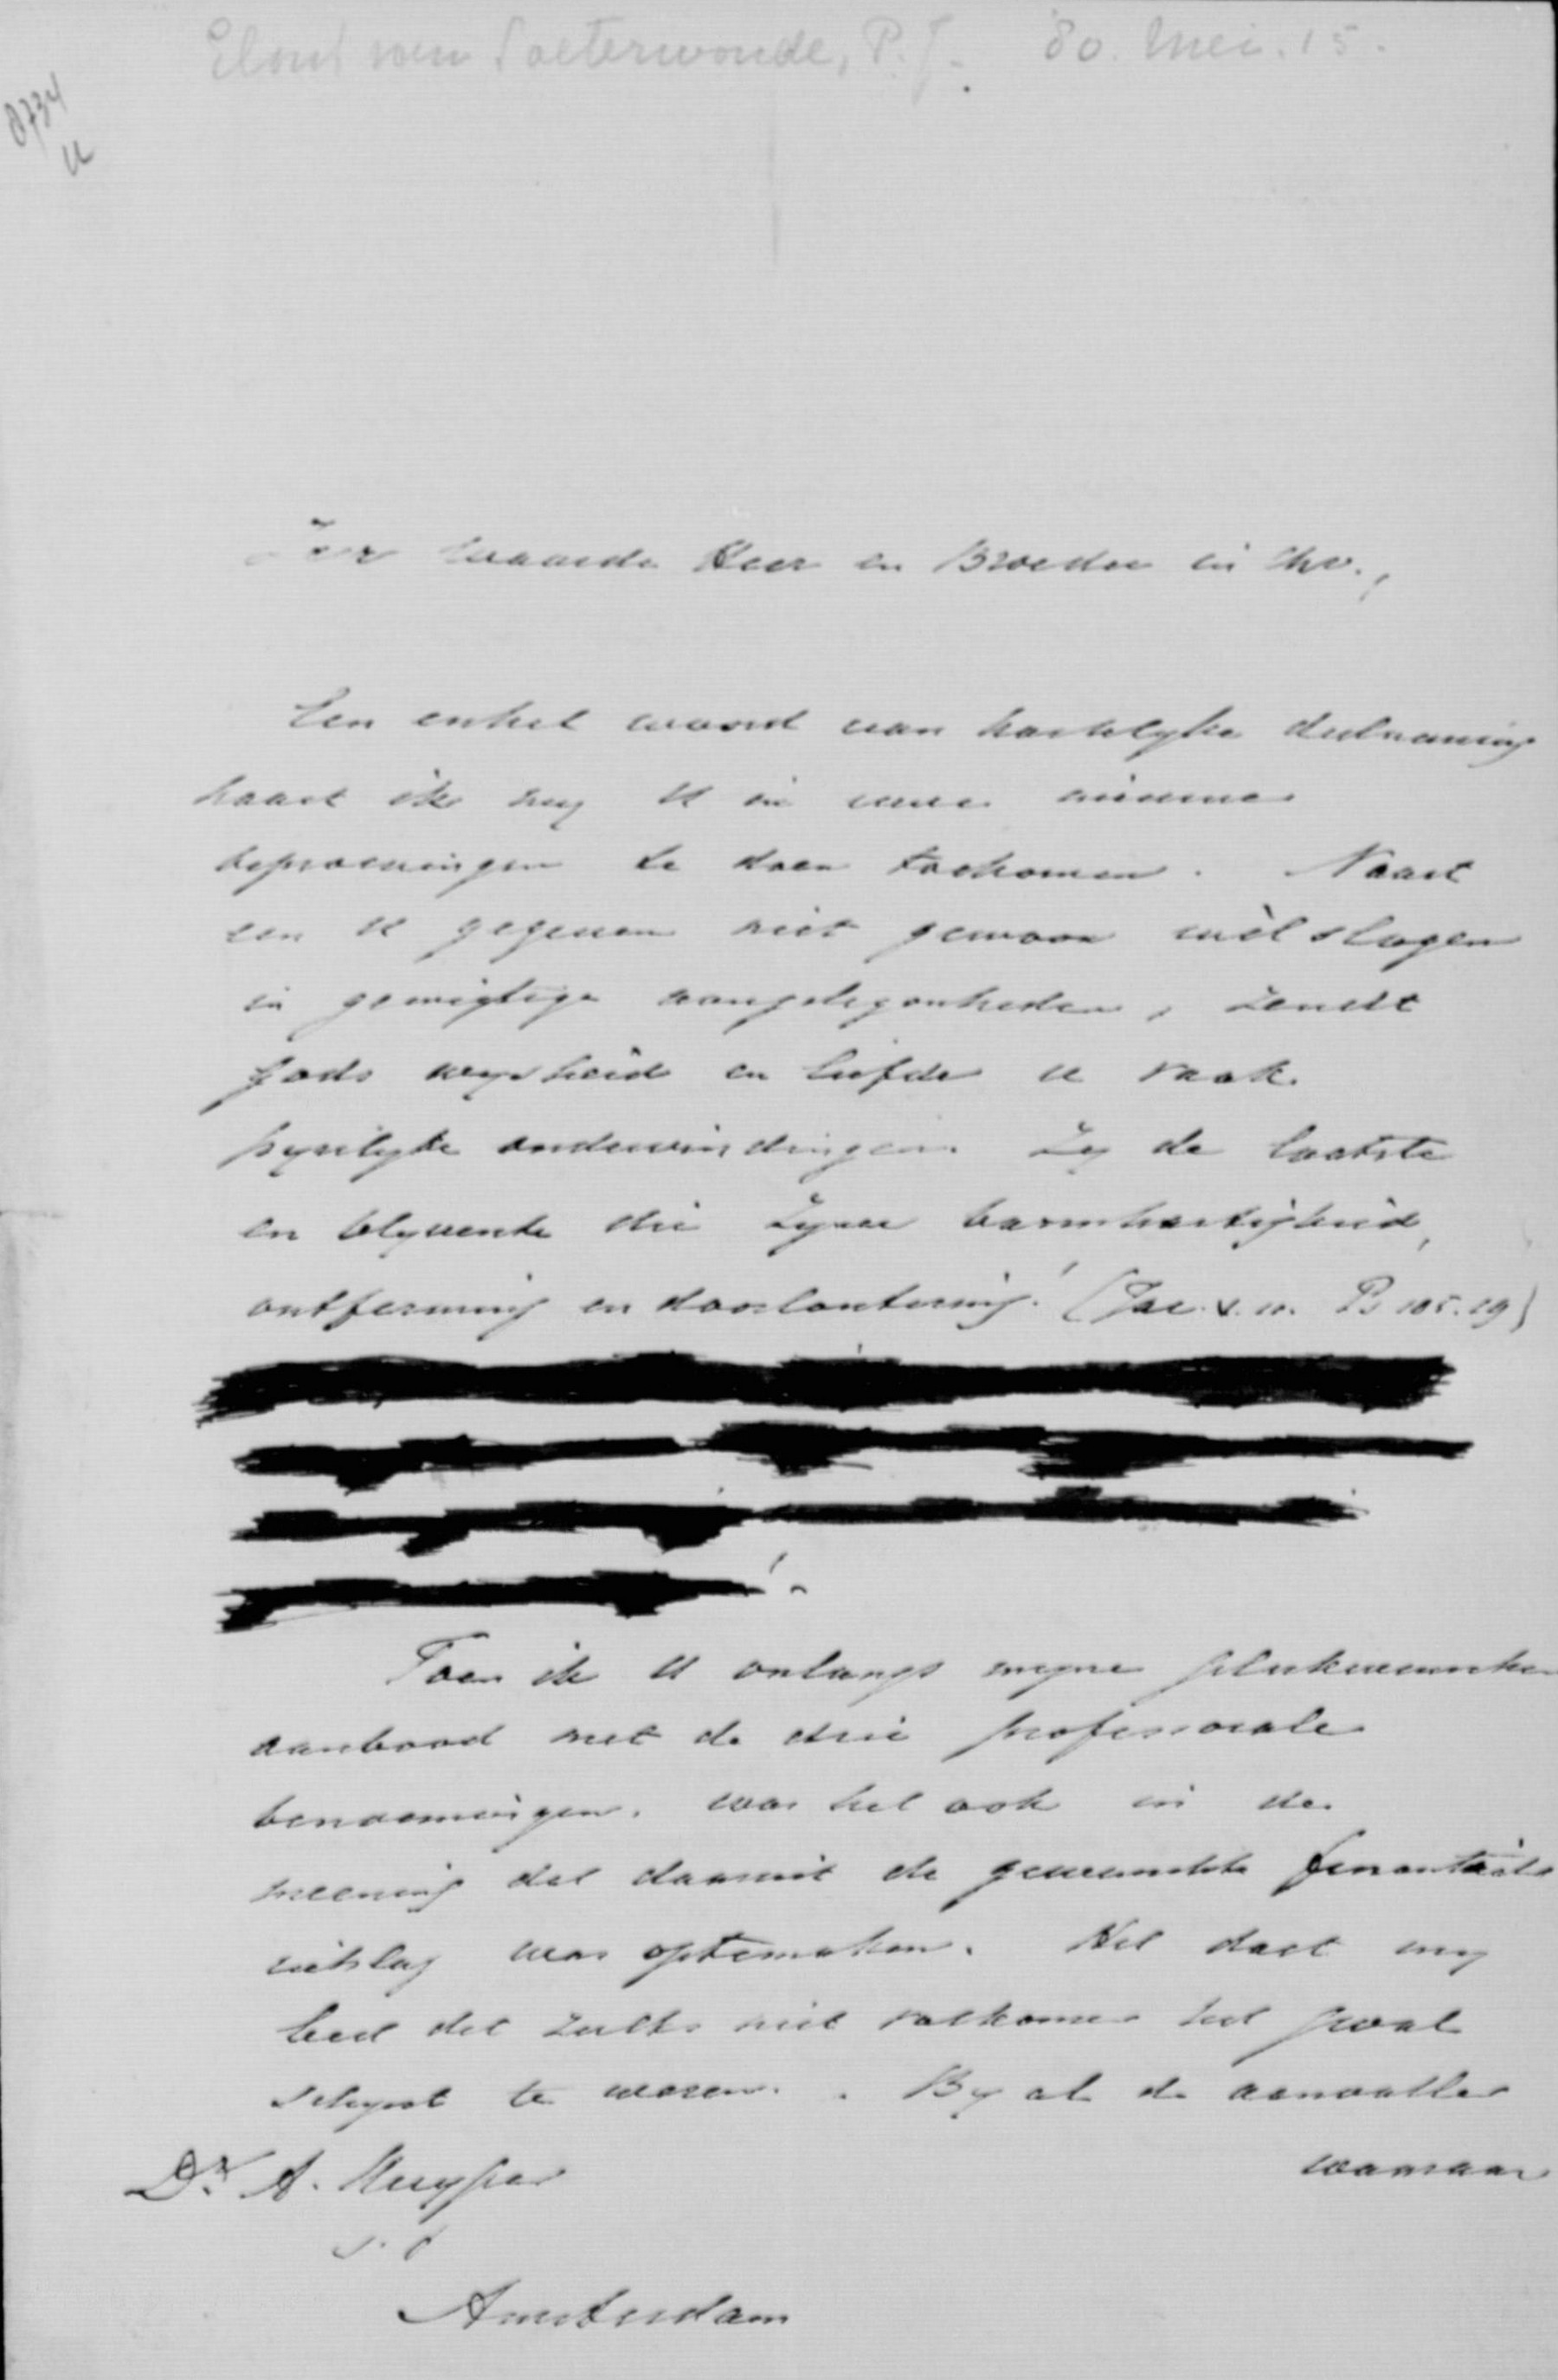 Elout van Soeterwoude, P.J. 80. Mei. 15.
0734
Zeer waarde Heer en Broeder in Chr.,
Een enkel woord van hartelyke deelneming
haast ik my U in uwe nieuwe
beproevingen te doen toekomen. Naast
een U gegeven niet gewoon wèl slagen
in gewigtige aangelegenheden, zendt
Gods wysheid en liefde U vaak
pynlyke ondervindingen. Zy de laatste
en blyvende die Zyner barmhartigheid,
ontferming en doorloutering! (Jac. v. 11. Ps 105.19)
Toen ik U onlangs myne gelukwenschen
aanbood met de drie professorale
benoemingen, was het ook in de
meening dat daaruit de gewenschte
uitslag was optemaken. Het doet my
leed dat zulks niet volkomen het geval
schynt te wezen. By al de aanvallen
waaraan
Dr. A. Kuyper
Amsterdam